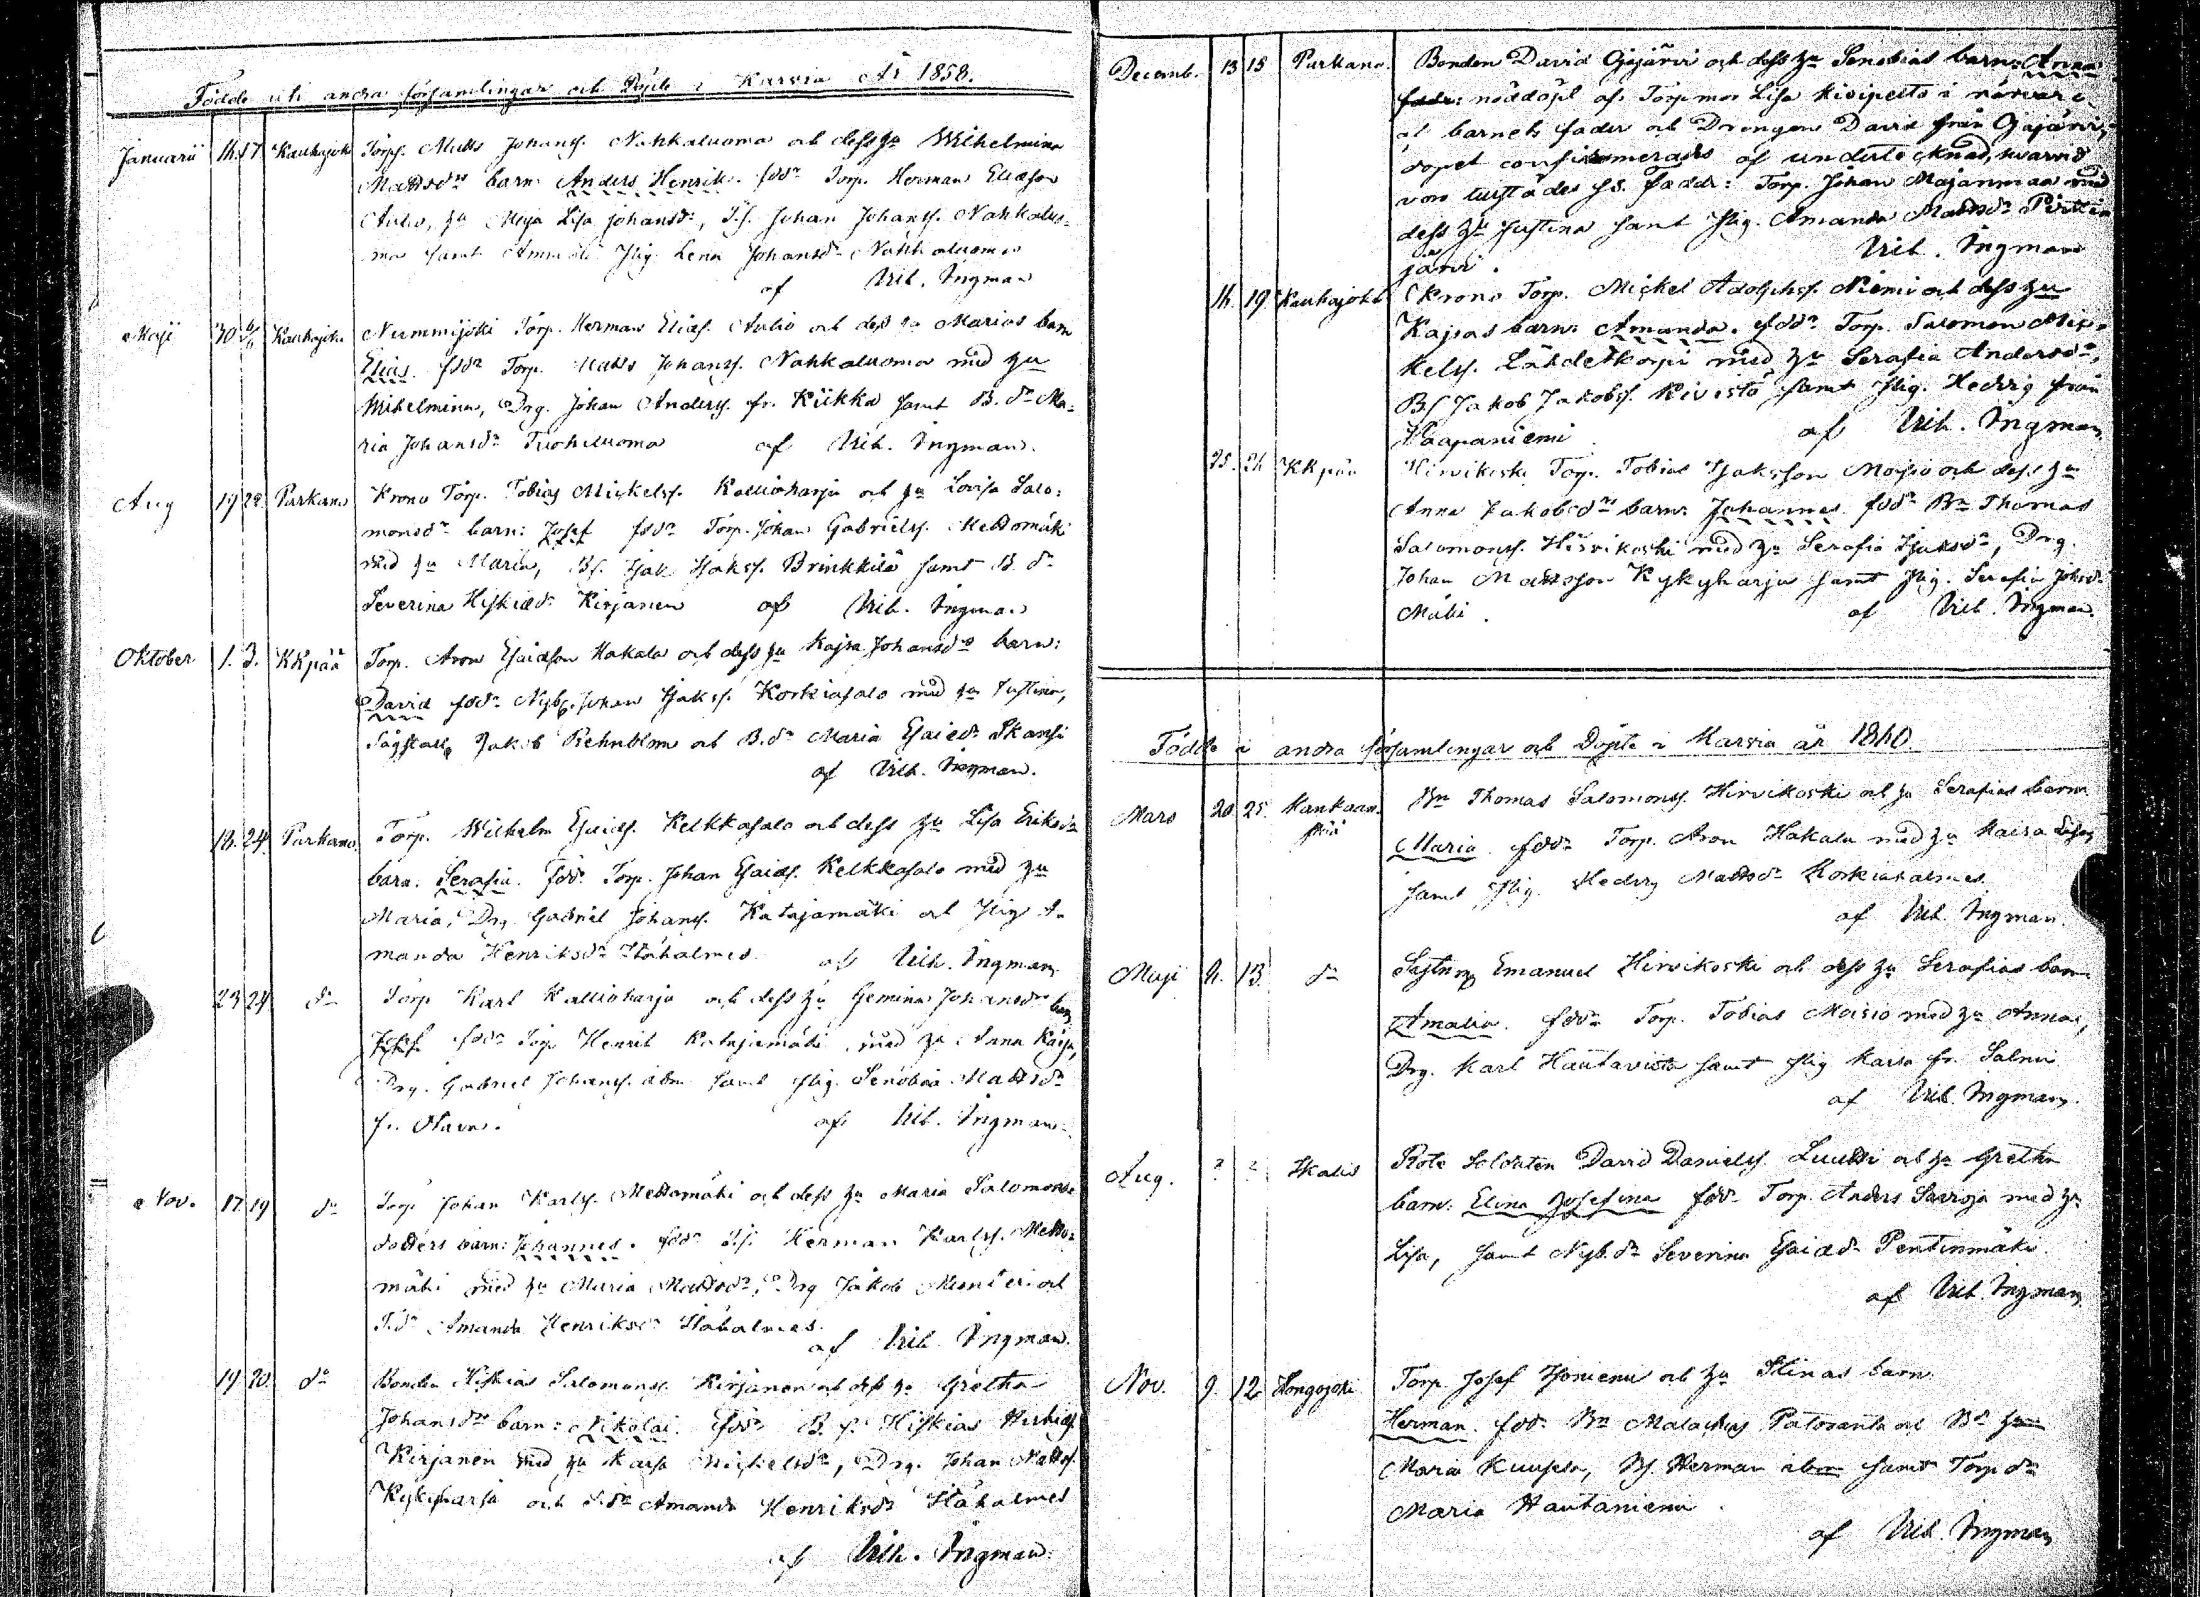 Födde uti andra församlingar och Döpte i Karvia År 1858.
Januarii 14. 17 Kauhajoki Torp. Matts Johanss. Nahkaluoma och dess hu Wilhelmina
Mattsdrs barn: Anders Henrik. fddr Torp. Herman Eliasson
Aulio, hu Maja Lisa Johansdr, T.s. Johan Johanss. Nahkaluo-
ma samt Pig. Lena Johansdr Nahkaluoma
af Vilh. Ingman
Maji 30 Kauhajoki Nummijoki Torp. Herman Eliass. Aulio och dess hu Marias barn
Elias. fddr Torp. Matts Johanss. Nahkaluoma med hu
Wilhelmina, Drg. Johan Anderss. fr. Kiikka samt B. dr Ma-
ria Johansdr Tuohiluoma af Vilh. Ingman.
Aug 19 22 Parkano Krono Torp. Tobias Mickelss. Kallioharju och hu Lovisa Salo-
monsdrs barn: Josef fddr Torp. Johan Gabrielss. Mettomäki
med hu Maria, Bs. Isak Isakss. Brinkkilä samt B. dr
Severina Hiskiædr Kirjanen af Vilh. Ingman
Oktober 1. 3. KKpää Torp. Aron Esaiasson Hakala och dess hu Kajsa Johansdrs barn:
David fddr Nyb. Johan Isakss. Korkiasalo med hu Justina,
Jakob Rehnblom och B. dr Maria Esaiedr Skansi
af Vilh. Ingman.
18. 24. Parkano Torp. Wilhelm Esaiæs. Kelkkasalo och dess hu Lisa Eriksdrs
barn. Serafia. fddr. Torp. Johan Esaiæs. Kelkkasalo med hu
Maria, Drg Gabriel Johanss. Katajamäki och Pig A-
manda Henriksdr Itäholmes af Vilh. Ingman
23 24 do Torp Karl Kallioharju och dess hu Gemina Johansdrs barn
Josef fddr Torp Henrik Katajamäki med hu Anna Kajsa,
Drg. Gabriel Johanss. ibm samt Pig. Senobia Mattsdr
fr. af Vilh. Ingman
Nov. 17 19 do Torp Johan Karlss. Mettomäki och dess hu Maria Salomons-
dotters barn: Johannes. fddr T.s. Herman Karlss. Metto-
mäki med hu Maria Mattsdr, Drg Jakob och
T.dr Amanda Henriksdr Itäholmes.
af Vilh. Ingman.
19 20. do Bonden Hiskias Salomonss. Kirjanen och dess hu Gretha
Johansdrs barn: Nikolai. fddr B. s. Hiskias Hiskiæs.
Kirjanen med hu Kajsa Michelsdr, Drg. Johan Matts.
Kykyharju och T.dr Amanda Henriksdr Itäholmes
af Vilh. Ingman.
Decemb. 13 15 Parkano. Bonden David Gajärvi och dess hu Senobias barn: Anna
fadr: nöddöpt af Torp.mor Lisa Kivipelto i närvaro
af barnets fader och Drängen David från Gajärvi,
dopet confirmerades af undertecknad, hvarvid
voro fadr: Torp. Johan Majanmaa med
dess hu Justina samt Pig. Amanda Mattsdr Pirttin
järvi. Vilh. Ingman
14. 19. Kauhajoki Krono Torp. Mickel Adolphs. Niemi och dess hu
Kajsas barn: Amanda. fddr Torp. Salomon Mic-
kelss. Lähdetkorpi med hu Serafia Andersdr,
Bs Jakob Jakobs. Kivistö samt Pig. Hedvig från
Haapaniemi af Vilh. Ingman
25. 26 KKpää Hirvikoski Torp. Tobias Isaksson Moisio och dess hu
Anna Jakobsdrs barn: Johannes fddr Bn Thomas
Salomonss. Hirvikoski med hu Serafia Isaksdr, Drg.
Johan Mattsson Kykyharju samt Pig. Serafia Johsdr
Mäki. af Vilh. Ingman.
Födde i andra församlingar och Döpte i Karvia år 1860
Mars 20. 25. Kankaan-
pää Bn Thomas Salomonss. Hirvikoski och hu Serafias barn
Maria. fddr Torp. Aron Hakala med hu Kaisa Lisa,
samt Pig. Hedvig Mattsdr Korkiakalmes.
af Vilh. Ingman.
Maji 9. 13. do Emanuel Hirvikoski och dess hu Serafias barn
Amalia. fddr Torp. Tobias Moisio med hu Anna,
Drg. Karl Hautaviita samt Pig Kaisa fr. Salmi
af Vilh. Ingman.
Aug. ? ? Ikalis Rote Soldaten David Daniels. Luutti och hu Gretha
barn: Elina Josefina fddr Torp. Anders Savoja med hu
Lisa, samt Nyb. dr Severina Esaiædr Pentinmäki.
af Vilh. Ingman
Nov. 9. 12 Hongojoki Torp Josef Isoniemi och hu Stinas barn
Herman. fddr Bn Malachias Patosanta och Bdr hu
Maria Kuusela, Bs. Herman ibm samt Torp dr
Maria Hautaniemi.
af Vilh. Ingman